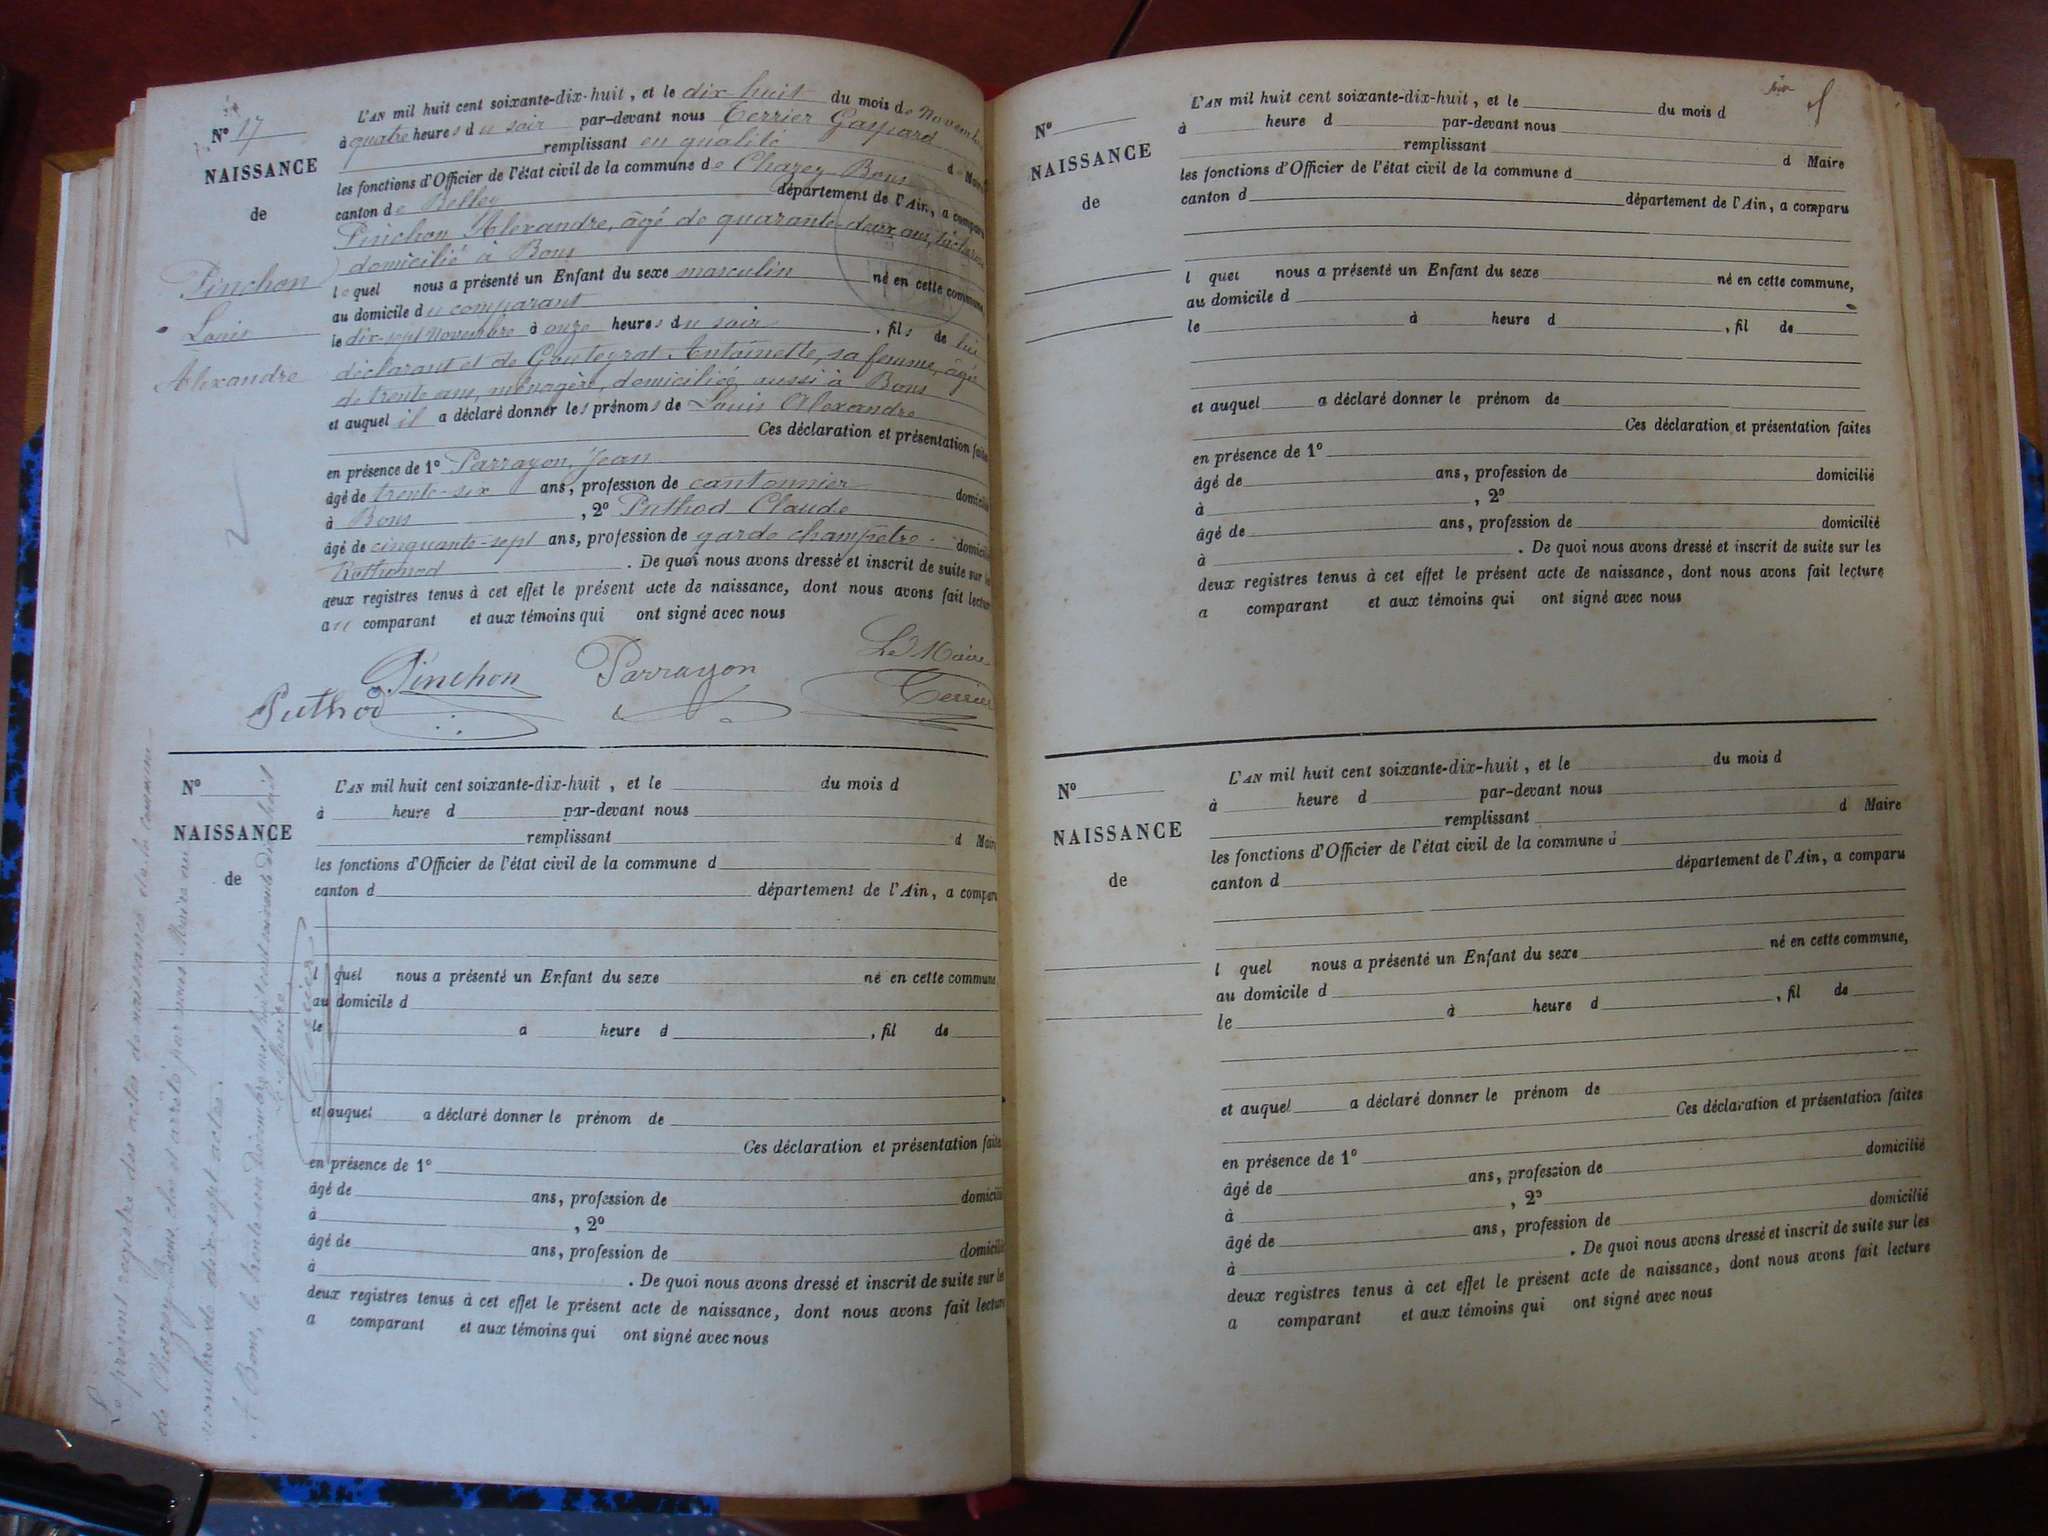 N° 17
NAISSANCE
de
Pinchon
Louis
Alexandre
L'AN mil huit cent soixante-dix-huit, et le dix huit du mois de Novembre
à quatre heures du soir par-devant nous Terrier Gaspard
remplissant en qualité de Maire
les fonctions d'Officier de l'état civil de la commune de Chazey Bons
canton de Belley département de l'Ain, a comparu
Pinchon Alexandre, âgé de quarante-deux ans,
domicilié à Bons
lequel nous a présenté un Enfant du sexe masculin né en cette commune,
au domicile du comparant
le dix-sept Novembre à onze heures du soir, fils de lui
déclarant et de Gouteyrat Antoinette, sa femme, âgée
de trente ans, ménagère, domiciliée aussi à Bons
et auquel il a déclaré donner les prénoms de Louis Alexandre
Ces déclaration et présentation faites
en présence de 1° Parrayon, Jean
âgé de trente-six ans, profession de cantonnier domicilié
à Bons, 2° Puthod Claude
âgé de cinquante-sept ans, profession de garde champêtre domicilié
Rothonod. De quoi nous avons dressé et inscrit de suite sur les
deux registres tenus à cet effet le présent acte de naissance, dont nous avons fait lecture
au comparant et aux témoins qui ont signé avec nous
Le Maire
Pinchon Parrayon Terrier
Puthod
N°
NAISSANCE
de
L'AN mil huit cent soixante-dix-huit, et le du mois d
à heure d par-devant nous
remplissant d Maire
les fonctions d'Officier de l'état civil de la commune d
canton d département de l'Ain, a comparu
l quel nous a présenté un Enfant du sexe né en cette commune
au domicile d
le a heure d , fil de
et auquel a déclaré donner le prénom de
Ces déclaration et présentation faites
en présence de 1°
âgé de ans, profession de domicilié
à , 2°
âgé de ans, profession de domicilié
à . De quoi nous avons dressé et inscrit de suite sur les
deux registres tenus à cet effet le présent acte de naissance, dont nous avons fait lecture
a comparant et aux témoins qui ont signé avec nous
Le présent registre des actes de naissance de la commune
de Chazey-Bons, clos et arrêté par nous Maire au
nombre de dix-sept actes.
A Bons, le trente-un Décembre mil huit cent soixante dix huit
Le Maire
Terrier
N°
NAISSANCE
de
L'AN mil huit cent soixante-dix-huit, et le du mois d
à heure d par-devant nous
remplissant d Maire
les fonctions d'Officier de l'état civil de la commune d
canton d département de l'Ain, a comparu
l quel nous a présenté un Enfant du sexe né en cette commune,
au domicile d
le à heure d , fil de
et auquel a déclaré donner le prénom de
Ces déclaration et présentation faites
en présence de 1°
âgé de ans, profession de domicilié
à , 2°
âgé de ans, profession de domicilié
à . De quoi nous avons dressé et inscrit de suite sur les
deux registres tenus à cet effet le présent acte de naissance, dont nous avons fait lecture
a comparant et aux témoins qui ont signé avec nous
N°
NAISSANCE
de
L'AN mil huit cent soixante-dix-huit, et le du mois d
à heure d par-devant nous
remplissant d Maire
les fonctions d'Officier de l'état civil de la commune d
canton d département de l'Ain, a comparu
l quel nous a présenté un Enfant du sexe né en cette commune,
au domicile d
le à heure d , fil de
et auquel a déclaré donner le prénom de
Ces déclaration et présentation faites
en présence de 1°
âgé de ans, profession de domicilié
à , 2°
âgé de ans, profession de domicilié
à . De quoi nous avons dressé et inscrit de suite sur les
deux registres tenus à cet effet le présent acte de naissance, dont nous avons fait lecture
a comparant et aux témoins qui ont signé avec nous